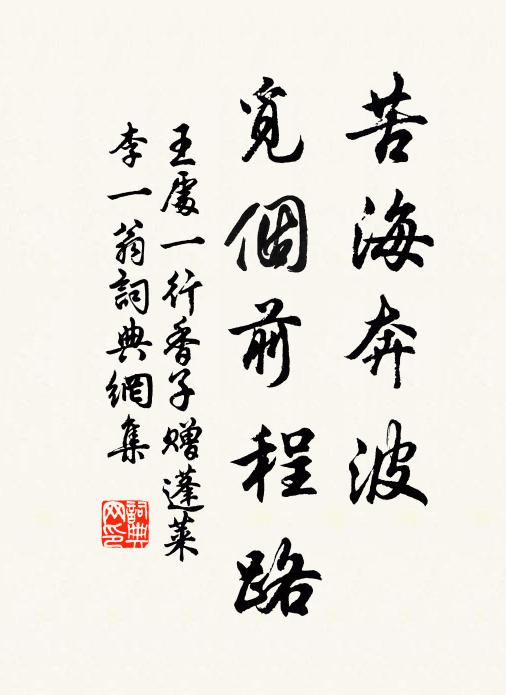 苦海奔波
覓個前程路
王處一行香子赠蓬萊
李一翁詞典網集
詞典網印